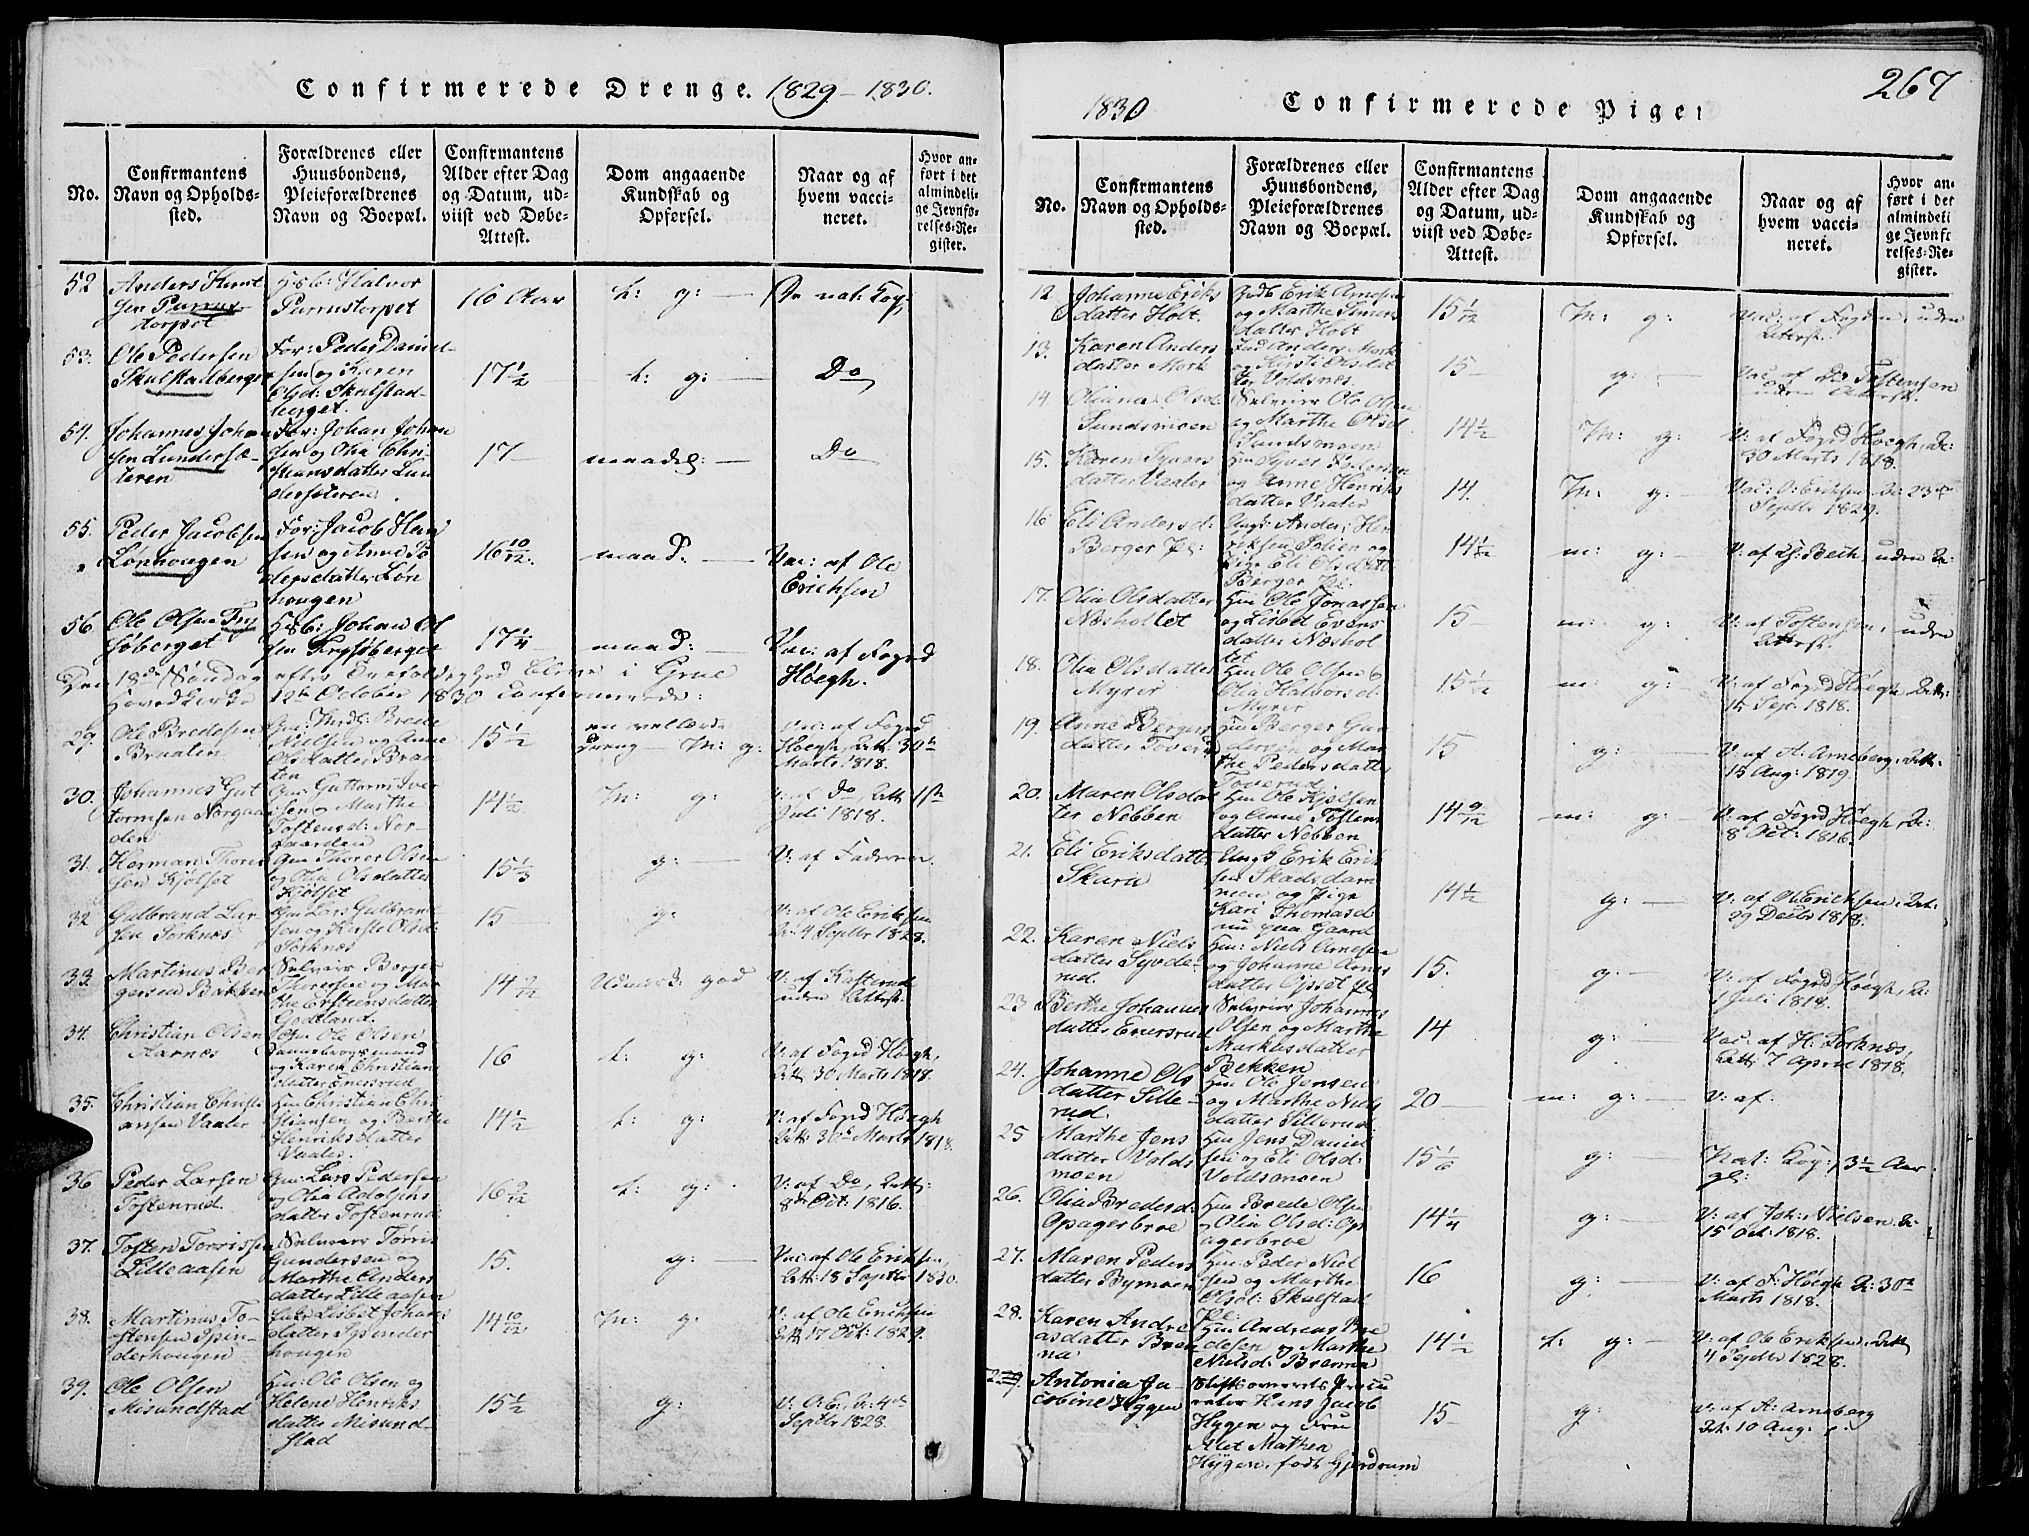 Confirmerede Drenge. 1829 - 1830.
No.
Confirmantens Navn og Opholds-sted.
Forældrenes eller Huusbondens, Pleieforældrenes Navn og Boepæl.
Confirmantens Alder efter Dag og Datum, ud-viist ved Døbe-Attest.
Dom angaaende Kundskab og Opførsel.
Naar og af hvem vacci-neret.
Hvor an-ført i det almindeli-ge Jevnfø-relses-Re-gister.
52 Anders Knut
sen Purrus
torpet
Hsb: Halvor
Purrustorpet
16 Aar
t: g:
nat: Kop:
53. Ole Pedersen
Skulstadberget
For: Peder Daniel-
sen og Karen
Olsd: Skulstad-
berget.
17 1/2
t: g:
Do
54. Johannes Johan
sen Lundersæ-
teren
For: Johan Johan
sen og Olia Chri-
stiansdatter Lun
dersæteren
17
maadel:
Do
55. Peder Jacobsen
Lønhougen
For: Jacob Han
sen og Anne Pe
dersdatter Løn
hougen
16 10/12.
maad:
Vac: af Ole
Erichsen
56 Ole Olsen Fry
søberget
Hsb: Johan Ol
sen Frysøberget
17 1/4
maad:
Vac: af Foged
Høegh.
Den 18de Søndag efter Trefoldighed bleve i Grue
Hovedkirke 12te October 1830 confirmerede:
29. Ole Bredesen
Braaten
Nielsen og Anne
Olsdatter Braa-
ten
15 1/2
Tm: g:
Vac: af Foged
Høegh, Att: 30te
Marts 1818.
30. Johannes Gut
tormsen Norgaar
den
Gm: Guttorm Iver
sen og Marthe
Tostensd: Nor-
gaarden
14 1/2
Tm: g:
V: af Do, Att: 1ste
Juli 1818.
31. Herman Thorer
sen Kjølset
Gm: Thorer Olsen
og Olia Olsdatter
Kjølset
15 1/3
g:
V: af Faderen.
32 Gulbrand Lar
sen Sorknæs
Gm: Lars Gulbrand
sen og Kirsti Olsd:
Sorknæs
15
g:
V: af Ole Eriksen
4 Septbr 1828.
33. Martinus Ber
gersen Bakken
Selveier Berger
Thoresen og Mar
the Erstensdatter
Godtland.
14 9/12
Udmærk: god
V: af Kasterud
uden Attest.
34. Christian Olsen
Aarnæs
Gm: Ole Olsen
Dannebrogsmand
og Karen Christians
datter Enersrud
16
t: g:
V: af Foged Høegh,
Att: 30 Marts 1818.
35. Christian Christi
ansen Vaaler
Hm: Christian Chri
stiansen og Berthe
Henriksdatter
Vaaler.
14 1/2
t: g:
V: af Foged Høegh
Att: 30te Marts 1818
36 Peder Larsen
Tostenrud.
Gm: Lars Pedersen
og Olia Adolfins
datter Tostenrud:
16 9/12
t: g:
V: af Do, Att:
8de Oct: 1816.
37. Tosten Torrissen
Lilleaasen
Selveier Tørris
Gundersen og
Marthe Anders
datter Lilleaasen
15.
g:
Vac: af Ole Eriksen,
Att: 18 Septbr 1830.
38. Martinus To-
stensen Spin-
derhougen
Enke Lisbet Johans
datter Spinder
hougen
14 10/12
Tm: g:
V: af Ole Erichsen
Att: 17 Oct: 1829.
39. Ole Olsen
Misundstad
Hm: Ole Olsen og
Helene Henriks
datter Misund-
stad
15 1/2
g:
V: O: E:, A: 4de
Septbr 1828.
267
1830
Confirmerede Piger
No.
Confirmantens Navn og Opholds-sted.
Forældrenes eller Huusbondens, Pleieforældrenes Navn og Boepæl.
Confirmantens Alder efter Dag og Datum, ud-viist ved Døbe-Attest.
Dom angaaende Kundskab og Opførsel.
Naar og af hvem vacci-neret.
Hvor an-ført i det almindeli ge Jevnfø relses-Re-gister.
12. Johanne Eriks
datter Holt.
Erik Arnesen
og Marthe Simens
datter Holt
15 1/12
Tm: g:
Vac: af Fogden, uden
Attest.
13. Karen Anders
datter Mork
Anders Mork
og Kirsti Olsdat
ter Voldsnæs.
15
g:
Vac: af Do Tostensen
uden Attest.
14 Oliana Olsd:
Sundsmoen
Selveier Ole Olsen
og Marthe Olsd
Sundsmoen
14 1/2
Tm: g:
V: af Foged Høegh, A:
30 Marts 1818.
15. Karen Syvers
datter Vaaler
Hm Syver Pedersen
og Anne Henriks
datter Vaaler
14.
Tm: g:
Vac: O: Eriksen A: 23de
Septbr 1829.
16 Eli Andersd:
Berger pl:
Ungk: Anders Hen
riksen Solien og
Pige Eli Olsdatt
Berger pl:
14 1/12
m: g:
V: af Beck, uden A:
17. Olia Olsdatter
Næsholtet
Hm Ole Jonassen
og Lisbet Evens
datter Næshol
tet
15
m: g:
V: af Tostensen, uden
Attest.
18. Olia Olsdatter
Myrer
Hm Ole Olsen &
Olia Halvorsd
Myrer
15 1/12
m: g:
V: af Foged Høegh, Att:
14 Sep: 1818.
19. Anne Bergers
datter Toverud
Hm Berger Gun
dersen og Mar
the Pedersdatter
Toverud
15
g:
V: af A: Arneberg, Att:
15 Aug: 1819.
20. Maren Olsdat
ter Nebben
Hm Ole Kjelsen
og Anne Tostens
datter Nebben
14 9/12
m: g:
V: af Foged Høegh, A:
8 Oct: 1816.
21. Eli Eriksdatter
Skara
Ungk Erik Erik
sen Skadsdam
men og Pige
Kari Thomasd:
nu paa Gaard
14 1/2
g:
V: af Ol Erichsen, Att:
29 Decbr 1818.
22. Karen Niels
datter Syvde-
rud.
Hm: Niels Arnesen
og Johanne Arnes
datter Opset pl.
15.
g:
V: af Foged Høegh, A:
1 Juli 1818.
23 Berthe Johannes
datter Enersrud
Selveier Johannes
Olsen og Marthe
Markusdatter
Bekken
14
g:
Vac: af H: Sorknæs,
Att: 7 April 1818.
24. Johanne Ols
datter Sille-
rud.
Hm Ole Jensen
og Marthe Niels
datter Sillerud
20
m: g:
V: af.
25 Marthe Jens
datter Volds
moen
Hm Jens Daniel
sen og Eli Olsd:
Voldsmoen
15 1/6
g:
Nat: Kop:, 3 1/2 Aar
gl:
26. Olia Bredesd:
Opagerbroe
Hm Brede Olsen
og Olia Olsd: Op
agerbroe
14 1/4
g:
V: af Joh: Nielsen A:
15 Oct: 1818.
27. Maren Peders
datter Bymoen
Hm: Peder Niel
sen og Marthe
Olsd: Skulstad
pl:
16
g:
V: af F: Høegh A: 30te
Marts 1818.
28. Karen Andre
asdatter Bren
na
Hm: Andreas Bre
desen og Marthe
Nielsd: Brenna
14 1/2
t: g:
V: af Ole Eriksen, Att:
4 Septbr 1828.
29. Antonia Ja-
cobine Hygen
Stiftsoverrets Procu
rator Hans Jacob
Hygen og Fru
Alet Mathea
Hygen, født Gjerdrum
15
g:
V: af A: Arneberg
Att: 10 Aug: